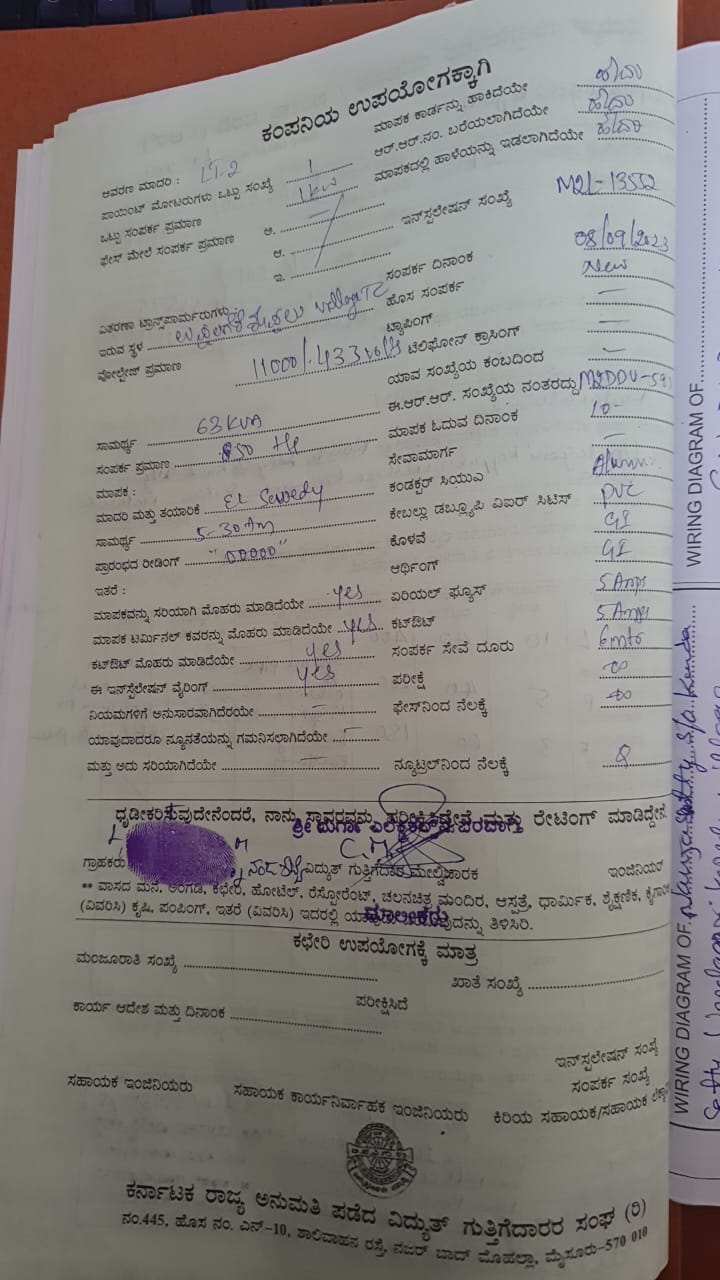 ಕಂಪನಿಯ ಉಪಯೋಗಕ್ಕಾಗಿ
ಆವರಣ ಮಾದರಿ : LT-2
ಪಾಯಿಂಟ್ ಮೋಟರುಗಳು ಒಟ್ಟು ಸಂಖ್ಯೆ 1
ಒಟ್ಟು ಸಂಪರ್ಕ ಪ್ರಮಾಣ 1kw
ಫೇಸ್ ಮೇಲೆ ಸಂಪರ್ಕ ಪ್ರಮಾಣ ಅ.
ಆ.
ಇ.
ವಿತರಣಾ ಟ್ರಾನ್ಸ್‌ಪಾರ್ಮರುಗಳು
ಇರುವ ಸ್ಥಳ village TC
ವೋಲ್ಟೇಜ್ ಪ್ರಮಾಣ 11000/.433 volts
ಸಾಮರ್ಥ್ಯ 63 KVA
ಸಂಪರ್ಕ ಪ್ರಮಾಣ 50 HP
ಮಾಪಕ :
ಮಾದರಿ ಮತ್ತು ತಯಾರಿಕೆ EL
ಸಾಮರ್ಥ್ಯ 5-30 Am
ಪ್ರಾರಂಭದ ರೀಡಿಂಗ್ "00000"
ಇತರೆ :
ಮಾಪಕವನ್ನು ಸರಿಯಾಗಿ ಮೊಹರು ಮಾಡಿದೆಯೇ yes
ಮಾಪಕ ಟರ್ಮಿನಲ್ ಕವರನ್ನು ಮೊಹರು ಮಾಡಿದೆಯೇ yes
ಕಟ್‌ಔಟ್ ಮೊಹರು ಮಾಡಿದೆಯೇ yes
ಈ ಇನ್‌ಸ್ಟಲೇಷನ್ ವೈರಿಂಗ್ yes
ನಿಯಮಗಳಿಗೆ ಅನುಸಾರವಾಗಿದೆರಯೇ –
ಯಾವುದಾದರೂ ನ್ಯೂನತೆಯನ್ನು ಗಮನಿಸಲಾಗಿದೆಯೇ –
ಮತ್ತು ಅದು ಸರಿಯಾಗಿದೆಯೇ –
ಮಾಪಕ ಕಾರ್ಡನ್ನು ಹಾಕಿದೆಯೇ ಹೌದು
ಆರ್.ಆರ್.ನಂ. ಬರೆಯಲಾಗಿದೆಯೇ ಹೌದು
ಮಾಪಕದಲ್ಲಿ ಹಾಳೆಯನ್ನು ಇಡಲಾಗಿದೆಯೇ ಹೌದು
ಇನ್‌ಸ್ಟಲೇಷನ್ ಸಂಖ್ಯೆ M2L-13552
ಸಂಪರ್ಕ ದಿನಾಂಕ 08/09/2023
ಹೊಸ ಸಂಪರ್ಕ New
ಟ್ಯಾಪಿಂಗ್ –
ಟೆಲಿಫೋನ್ ಕ್ರಾಸಿಂಗ್ –
ಯಾವ ಸಂಖ್ಯೆಯ ಕಂಬದಿಂದ –
ಈ.ಆರ್.ಆರ್. ಸಂಖ್ಯೆಯ ನಂತರದ್ದು
ಮಾಪಕ ಓದುವ ದಿನಾಂಕ 10-
ಸೇವಾಮಾರ್ಗ –
ಕಂಡಕ್ಟರ್ ಸಿಯುವಿ
ಕೇಬಲ್ಲು ಡಬ್ಲ್ಯೂಪಿ ವಿಐರ್ ಸಿಟಿಸ್ PVC
ಕೊಳವೆ GI
ಆರ್ಥಿಂಗ್ GI
ಏರಿಯಲ್ ಫ್ಯೂಸ್ 5 Amps
ಕಟ್‌ಔಟ್ 5 Amps
ಸಂಪರ್ಕ ಸೇವೆ ದೂರು 6 mts
ಪರೀಕ್ಷೆ ∞
ಫೇಸ್‌ನಿಂದ ನೆಲಕ್ಕೆ ∞
ನ್ಯೂಟ್ರಲ್‌ನಿಂದ ನೆಲಕ್ಕೆ
ಧೃಢೀಕರಿಸುವುದೇನೆಂದರೆ, ನಾನು ಸ್ಥಾವರವನ್ನು ಪರೀಕ್ಷಿಸಿದ್ದೇನೆ ಮತ್ತು ರೇಟಿಂಗ್ ಮಾಡಿದ್ದೇನೆ
ಗ್ರಾಹಕರು ವಿದ್ಯುತ್ ಗುತ್ತಿಗೆದಾರ ಮೇಲ್ವಿಚಾರಕ ಇಂಜಿನಿಯರ್
** ವಾಸದ ಮನೆ, ಅಂಗಡಿ, ಕಛೇರಿ, ಹೋಟೆಲ್, ರೆಸ್ಟೋರೆಂಟ್, ಚಲನಚಿತ್ರ ಮಂದಿರ, ಆಸ್ಪತ್ರೆ, ಧಾರ್ಮಿಕ, ಶೈಕ್ಷಣಿಕ,
(ವಿವರಿಸಿ) ಕೃಷಿ, ಪಂಪಿಂಗ್, ಇತರೆ (ವಿವರಿಸಿ) ಇದರಲ್ಲಿ ತಿಳಿಸಿರಿ.
ಮಾಲೀಕರು
ಕಛೇರಿ ಉಪಯೋಗಕ್ಕೆ ಮಾತ್ರ
ಮಂಜೂರಾತಿ ಸಂಖ್ಯೆ ಖಾತೆ ಸಂಖ್ಯೆ
ಪರೀಕ್ಷಿಸಿದೆ
ಕಾರ್ಯ ಆದೇಶ ಮತ್ತು ದಿನಾಂಕ
ಇನ್‌ಸ್ಟಲೇಷನ್ ಸಂಖ್ಯೆ
ಸಂಪರ್ಕ ಸಂಖ್ಯೆ
ಸಹಾಯಕ ಇಂಜಿನಿಯರು ಸಹಾಯಕ ಕಾರ್ಯನಿರ್ವಾಹಕ ಇಂಜಿನಿಯರು ಕಿರಿಯ ಸಹಾಯಕ/ಸಹಾಯಕ
ಕರ್ನಾಟಕ ರಾಜ್ಯ ಅನುಮತಿ ಪಡೆದ ವಿದ್ಯುತ್ ಗುತ್ತಿಗೆದಾರರ ಸಂಘ (ರಿ)
ನಂ.445, ಹೊಸ ನಂ. ಎನ್-10, ಶಾಲಿವಾಹನ ರಸ್ತೆ, ನಜರ್ ಬಾದ್ ಮೊಹಲ್ಲಾ, ಮೈಸೂರು-570 010
WIRING DIAGRAM OF
WIRING DIAGRAM OF